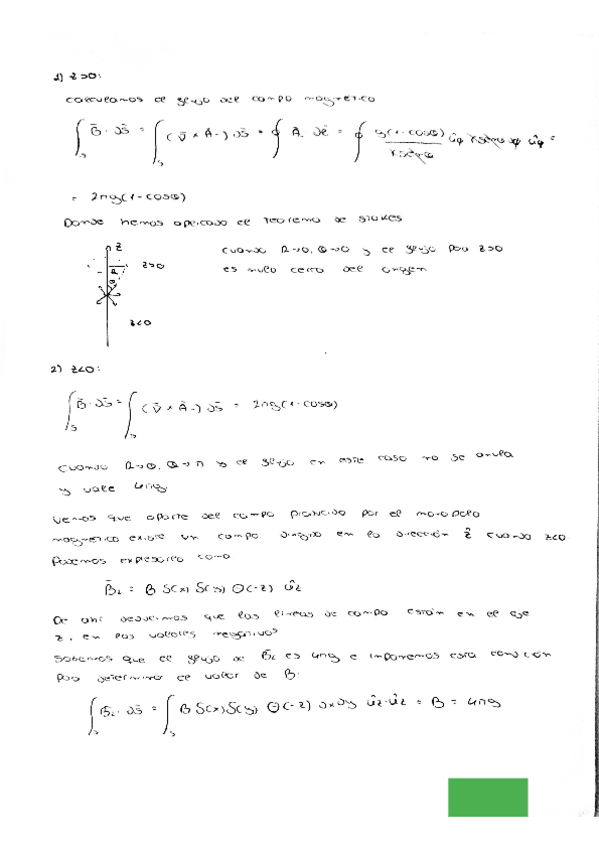 1) z>0:
Calculamos el flujo del campo magnético
∫_S B̄·dS̄ = ∫_S (∇̄ × Ā-) dS̄ = ∮ Ā·dl̄ = ∮ g(1-cosθ)/(r senθ) û_φ r senθ dφ û_φ =
= 2πg(1-cosθ)
Donde hemos aplicado el teorema de Stokes
z
z>0
R
θ
z<0
cuando R→0, θ→0 y el flujo para z>0
es nulo cerca del origen
2) z<0:
∫_S B̄·dS̄ = ∫_S (∇̄ × Ā-) dS̄ = 2πg(1-cosθ)
cuando R→0, θ→π y el flujo en este caso no se anula
y vale 4πg
Vemos que aparte del campo producido por el monopolo
magnético existe un campo dirigido en la dirección ẑ cuando z<0
Podemos expresarlo como
B̄_L = B δ(x) δ(y) Θ(-z) û_z
De ahí deducimos que las líneas de campo están en el eje
z, en los valores negativos
Sabemos que el flujo de B̄_L es 4πg e imponemos esta condición
para determinar el valor de B:
∫_S B̄_L·dS̄ = ∫_S B δ(x) δ(y) Θ(-z) dx dy û_z·û_z = B = 4πg